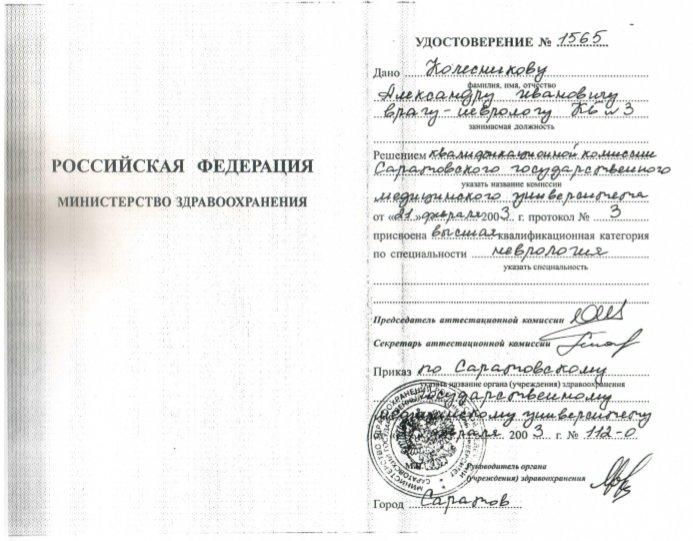 РОССИЙСКАЯ ФЕДЕРАЦИЯ
МИНИСТЕРСТВО ЗДРАВООХРАНЕНИЯ
УДОСТОВЕРЕНИЕ № 1565
Дано Колесникову
фамилия, имя, отчество
Александру Ивановичу
врачу-неврологу КБ №3
занимаемая должность
Решением квалификационной комиссии
Саратовского государственного
указать название комиссии
медицинского университета
от «21» февраля 2003 г. протокол № 3
присвоена высшая квалификационная категория
по специальности неврология
указать специальность
Председатель аттестационной комиссии
Секретарь аттестационной комиссии
Приказ по Саратовскому
указать название органа (учреждения) здравоохранения
государственному
медицинскому университету
февраля 2003 г. № 112-О
М.П.
Руководитель органа
(учреждения) здравоохранения
Город Саратов